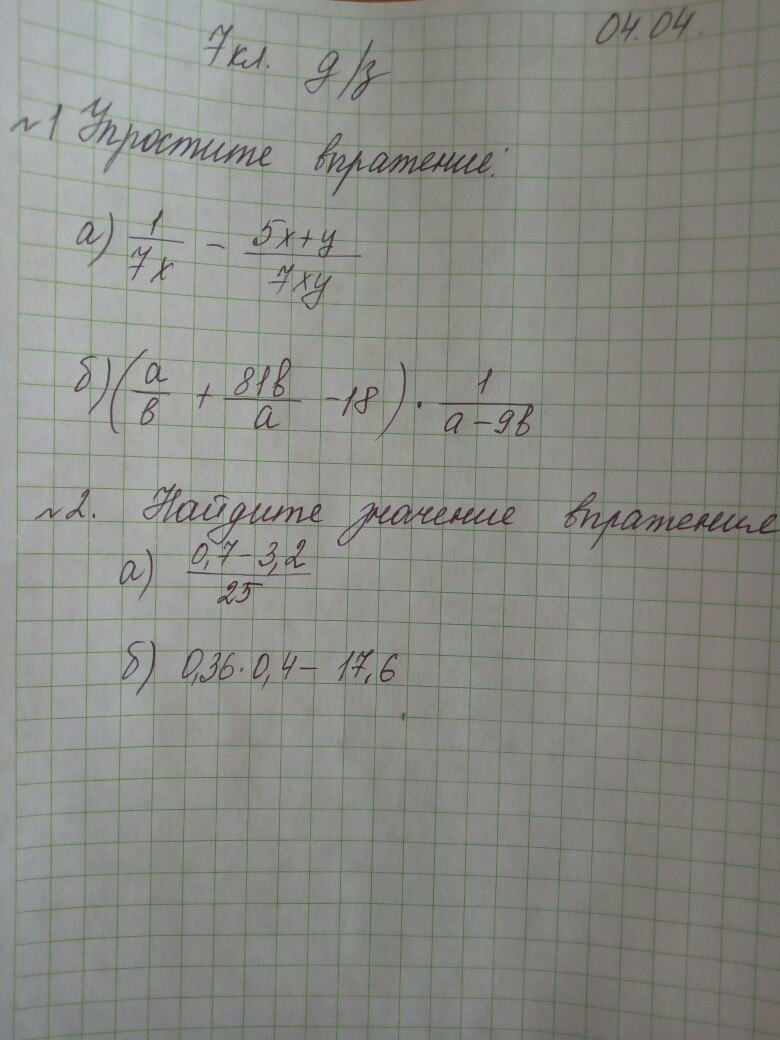 7 кл. д/з 04.04.
№1 Упростите впражение:
а) 1/7x - 5x+y/7xy
б) (a/b + 81b/a - 18) · 1/a-9b
№2. Найдите значение впражения
а) 0,7-3,2/25
б) 0,36·0,4 - 17,6